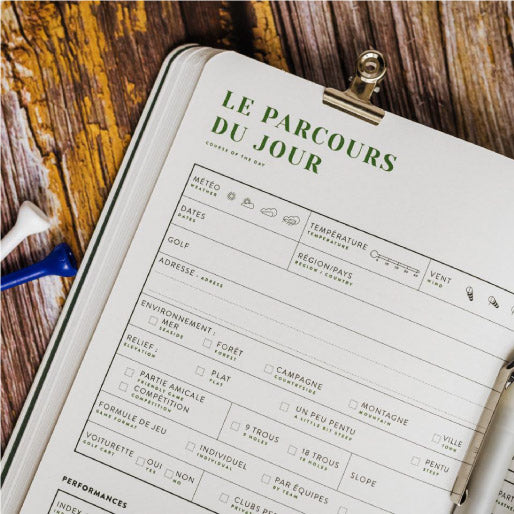 LE PARCOURS
DU JOUR
COURSE OF THE DAY
MÉTÉO
WEATHER
TEMPÉRATURE
TEMPERATURE
VENT
WIND
DATES
DATES
RÉGION/PAYS
REGION - COUNTRY
GOLF
ADRESSE - ADRESS
ENVIRONNEMENT :
MER
SEASIDE
FORÊT
FOREST
CAMPAGNE
COUNTRYSIDE
MONTAGNE
MOUNTAIN
VILLE
TOWN
RELIEF :
ELEVATION
PLAT
FLAT
UN PEU PENTU
A LITTLE BIT STEEP
PENTU
STEEP
PARTIE AMICALE
FRIENDLY GAME
COMPÉTITION
COMPETITION
9 TROUS
9 HOLES
18 TROUS
18 HOLES
SLOPE
FORMULE DE JEU
GAME FORMAT
INDIVIDUEL
INDIVIDUAL
PAR ÉQUIPES
BY TEAM
VOITURETTE
GOLF CART
OUI
YES
NON
NO
CLUBS PE
PRIVATE
PERFORMANCES
INDEX